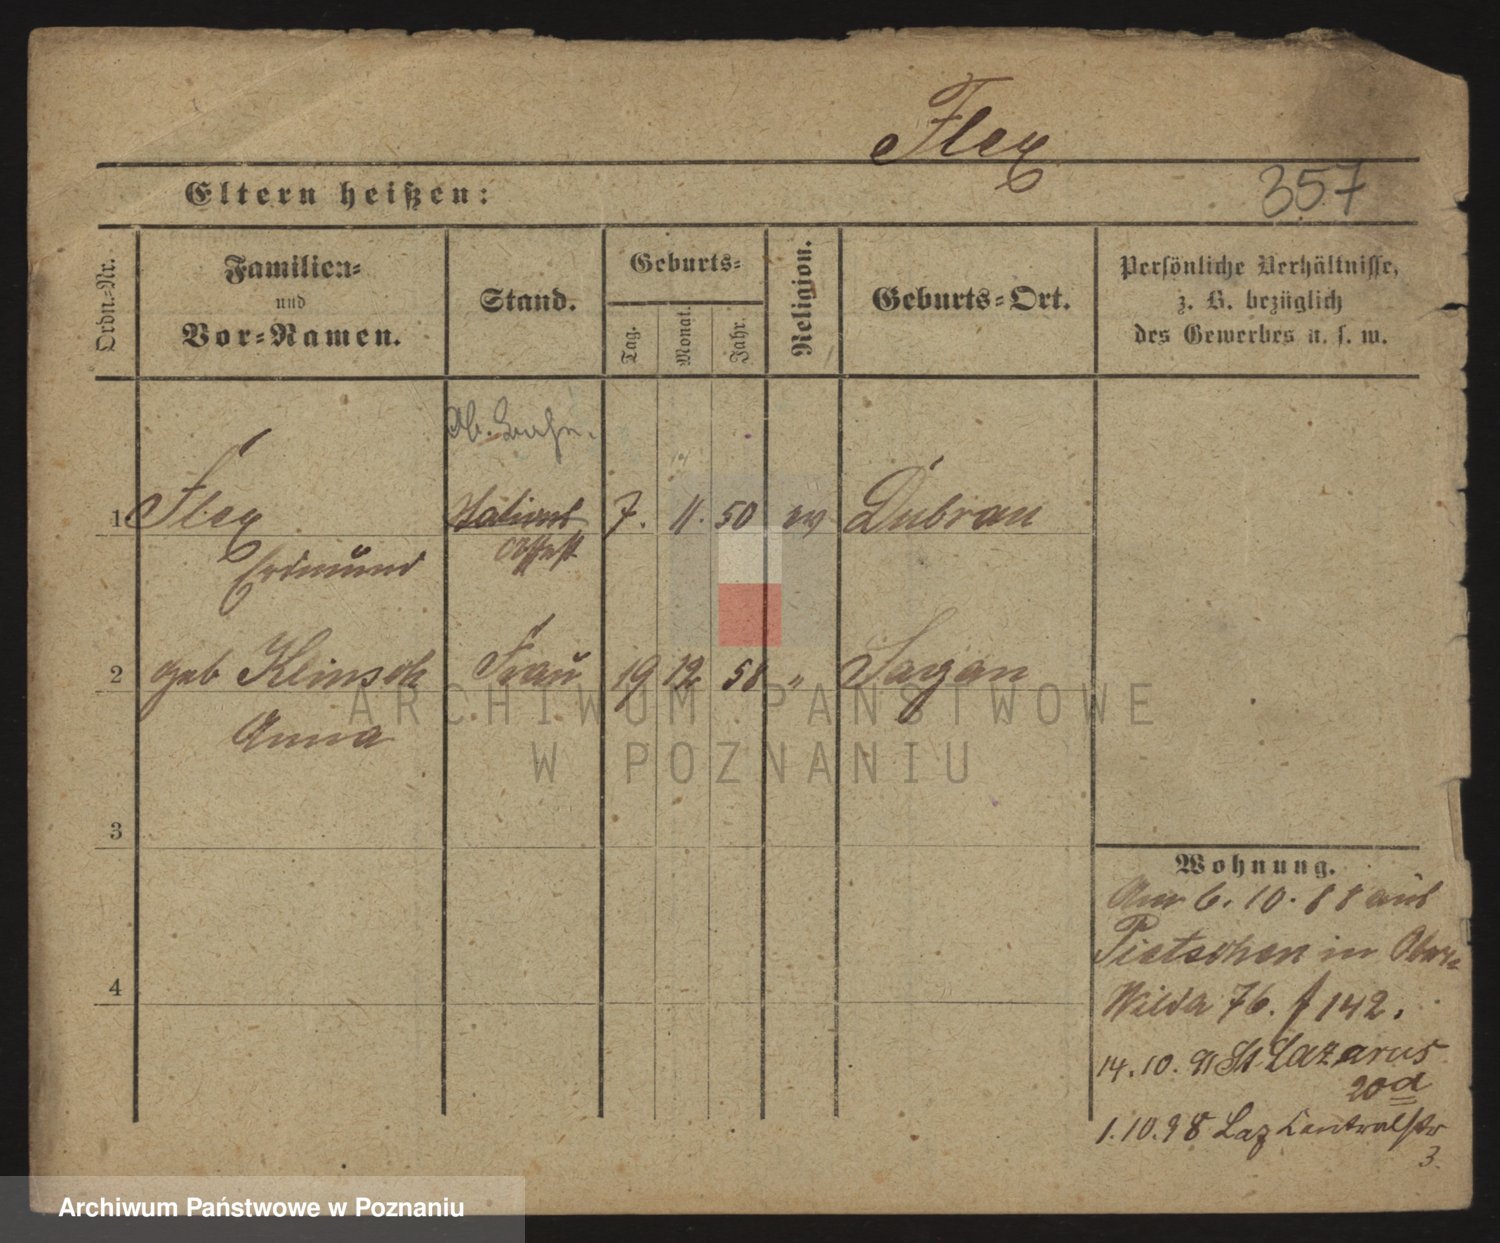 Flex
Eltern heißen:
357
Ordn.-Nr.
Familien-
und
Vor-Namen.
Stand.
Geburts-
Tag.
Monat.
Jahr.
Religion.
Geburts-Ort.
Persönliche Verhältnisse,
z. B. bezüglich
des Gewerbes u. s. w.
1 Flex Stations 7. 11. 50 ev Dubrau
Erdmund Assist
2 geb Klinsch Frau 19 12 58 " Sagan
Anna
3
4
Wohnung.
Am 6. 10. 88 aus
Pietschen in Ober-
Wilda 76. f 142.
14. 10. 91 St Lazarus
20d
1. 10. 98 Laz Centralstr
3.
ARCHIWUM PAŃSTWOWE
W POZNANIU
Archiwum Państwowe w Poznaniu